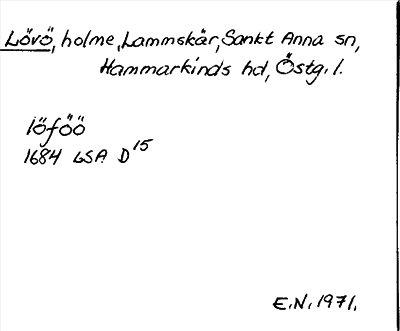 Lövö, holme, Lammskär, Sankt Anna sn,
Hammarkinds hd, Östg. l.
löföö
1684 LSA D 15
E.N. 1971.